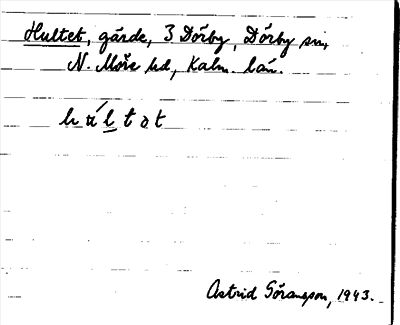 Hultet, gärde, 3 Dörby, Dörby sn,
N. Möre hd, Kalm. län.
húltət
Astrid Göransson, 1943.